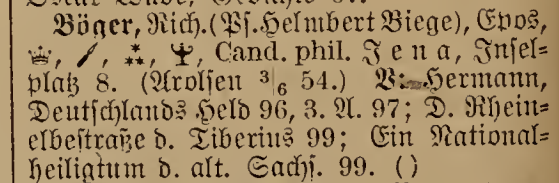 Böger, Rich. (Ps. Helmbert Biege), Epos,
Cand. phil. Jena, Insel=
platz 8. (Arolsen 3/6 54.) V: Hermann,
Deutschlands Held 96, 3. A. 97; D. Rhein=
elbestraße d. Tiberius 99; Ein National=
heiligtum d. alt. Sachs. 99. ()